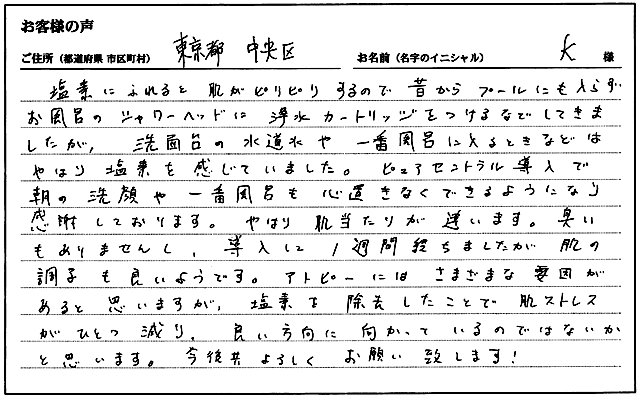 お客様の声
ご住所（都道府県 市区町村） 東京都 中央区 お名前（名字のイニシャル） K 様
塩素にふれると肌がピリピリするので昔からプールにも入らず
お風呂のシャワーヘッドに浄水カートリッジをつけるなどしてきま
したが、洗面台の水道水や一番風呂に入るときなどは
やはり塩素を感じていました。ピュアセントラル導入で
朝の洗顔や一番風呂も心置きなくできるようになり
感謝しております。やはり肌当たりが違います。臭い
もありませんし、導入して1週間経ちましたが肌の
調子も良いようです。アトピーにはさまざまな要因が
あると思いますが、塩素を除去したことで肌ストレス
がひとつ減り、良い方向に向かっているのではないか
と思います。今後共よろしくお願い致します！